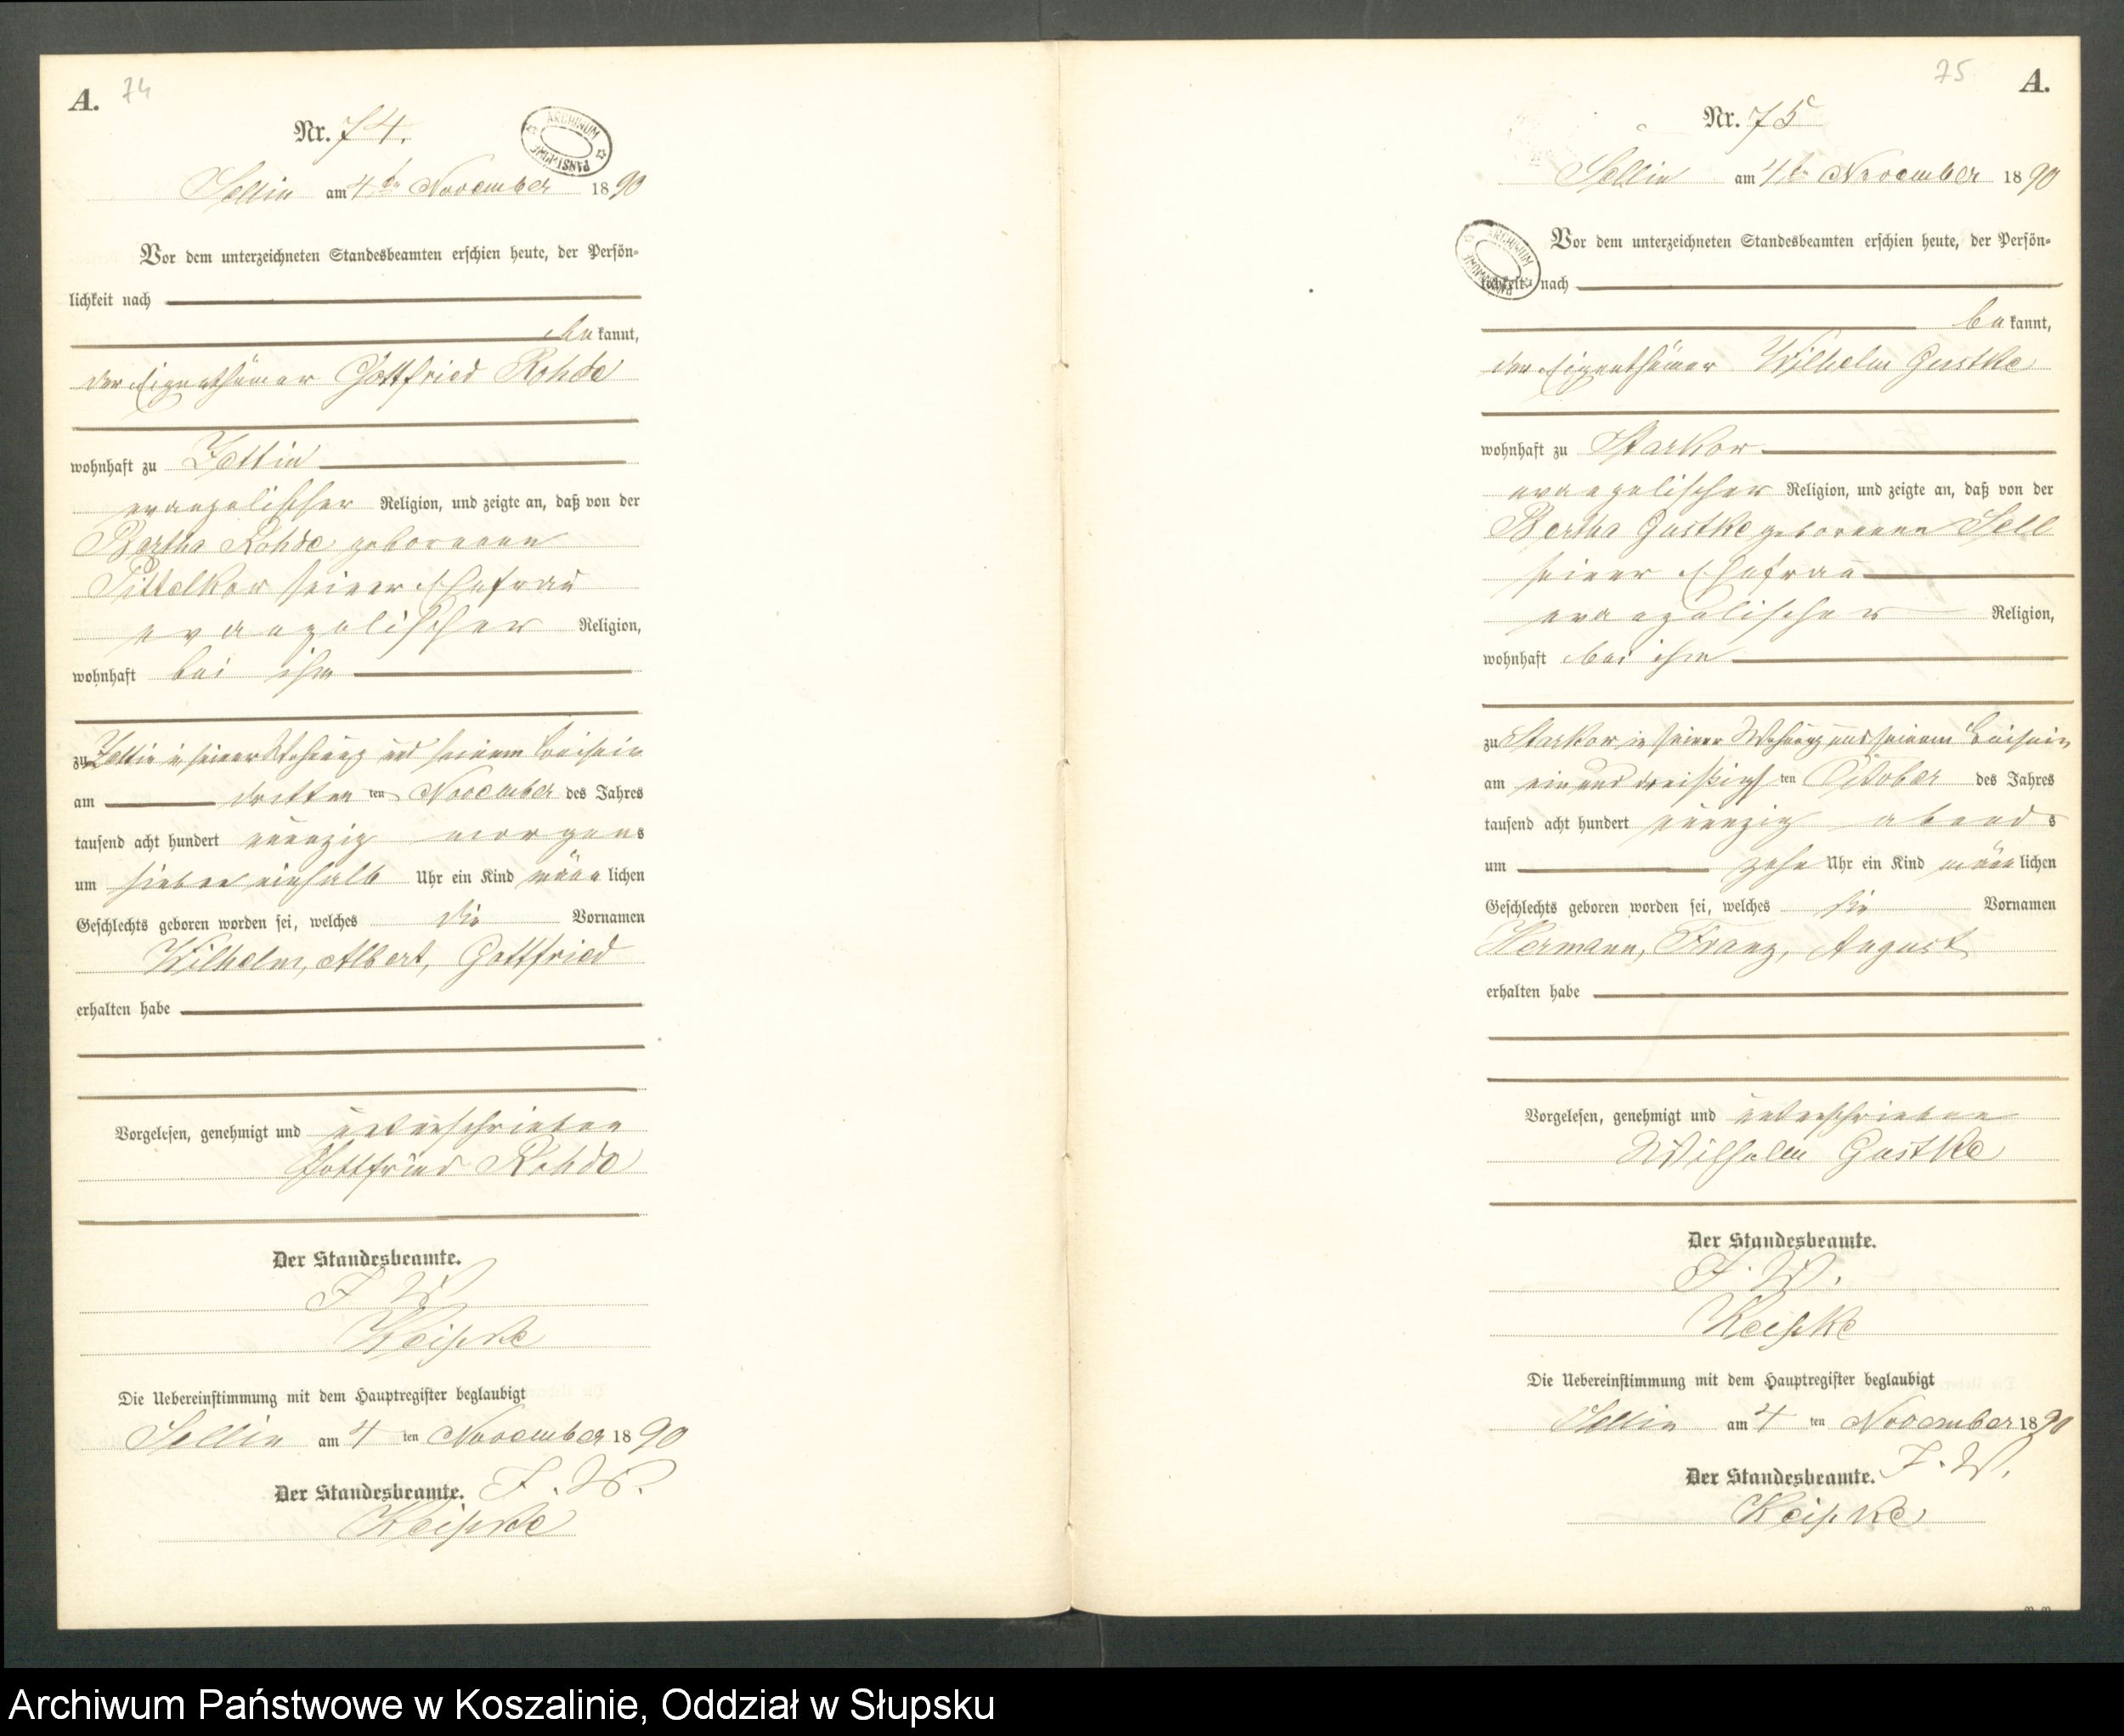 A. 74
Nr. 74.
ARCHIWUM PAŃSTWOWE
Sellin am 4ten November 1890
Vor dem unterzeichneten Standesbeamten erschien heute, der Persön-
lichkeit nach
bekannt,
der Eigenthümer Gottfried Rohde
wohnhaft zu Zettin
evangelischer Religion, und zeigte an, daß von der
Bertha Rohde geborenen
Pittelkow seiner Ehefrau
evangelischer Religion,
wohnhaft bei ihm
zu Zettin in seiner Wohnung und seinem Beisein
am dritten ten November des Jahres
tausend acht hundert neunzig morgens
um sieben einhalb Uhr ein Kind männlichen
Geschlechts geboren worden sei, welches die Vornamen
Wilhelm, Albert, Gottfried
erhalten habe
Vorgelesen, genehmigt und unterschrieben
Gottfried Rohde
Der Standesbeamte.
J. W.
Die Uebereinstimmung mit dem Hauptregister beglaubigt
Sellin am 4 ten November 1890
Der Standesbeamte. J. W.
75 A.
Nr. 75
Sellin am 4ten November 1890
ARCHIWUM PAŃSTWOWE
Vor dem unterzeichneten Standesbeamten erschien heute, der Persön-
lichkeit nach
bekannt,
der Eigenthümer Wilhelm Gustke
wohnhaft zu Starkow
evangelischer Religion, und zeigte an, daß von der
Bertha Gustke geborenen Sell
seiner Ehefrau
evangelischer Religion,
wohnhaft bei ihm
zu Starkow in seiner Wohnung und seinem Beisein
am ein und dreißigs ten October des Jahres
tausend acht hundert neunzig abends
um zehn Uhr ein Kind männlichen
Geschlechts geboren worden sei, welches die Vornamen
Hermann, Franz, August
erhalten habe
Vorgelesen, genehmigt und unterschrieben
Wilhelm Gustke
Der Standesbeamte.
J. W.
Die Uebereinstimmung mit dem Hauptregister beglaubigt
Sellin am 4 ten November 1890
Der Standesbeamte. J. W.
Archiwum Państwowe w Koszalinie, Oddział w Słupsku